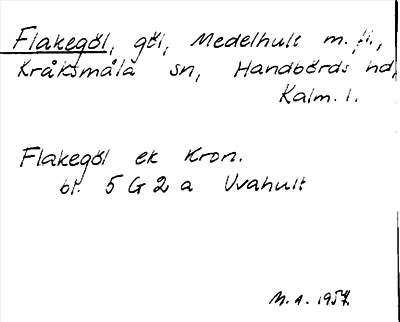 Flakegöl, göl, Medelhult m. fl.,
Kråksmåla sn, Handbörds hd,
Kalm. l.
Flakegöl ek Kron.
bl. 5 G 2 a Uvahult
M. A. 1957.